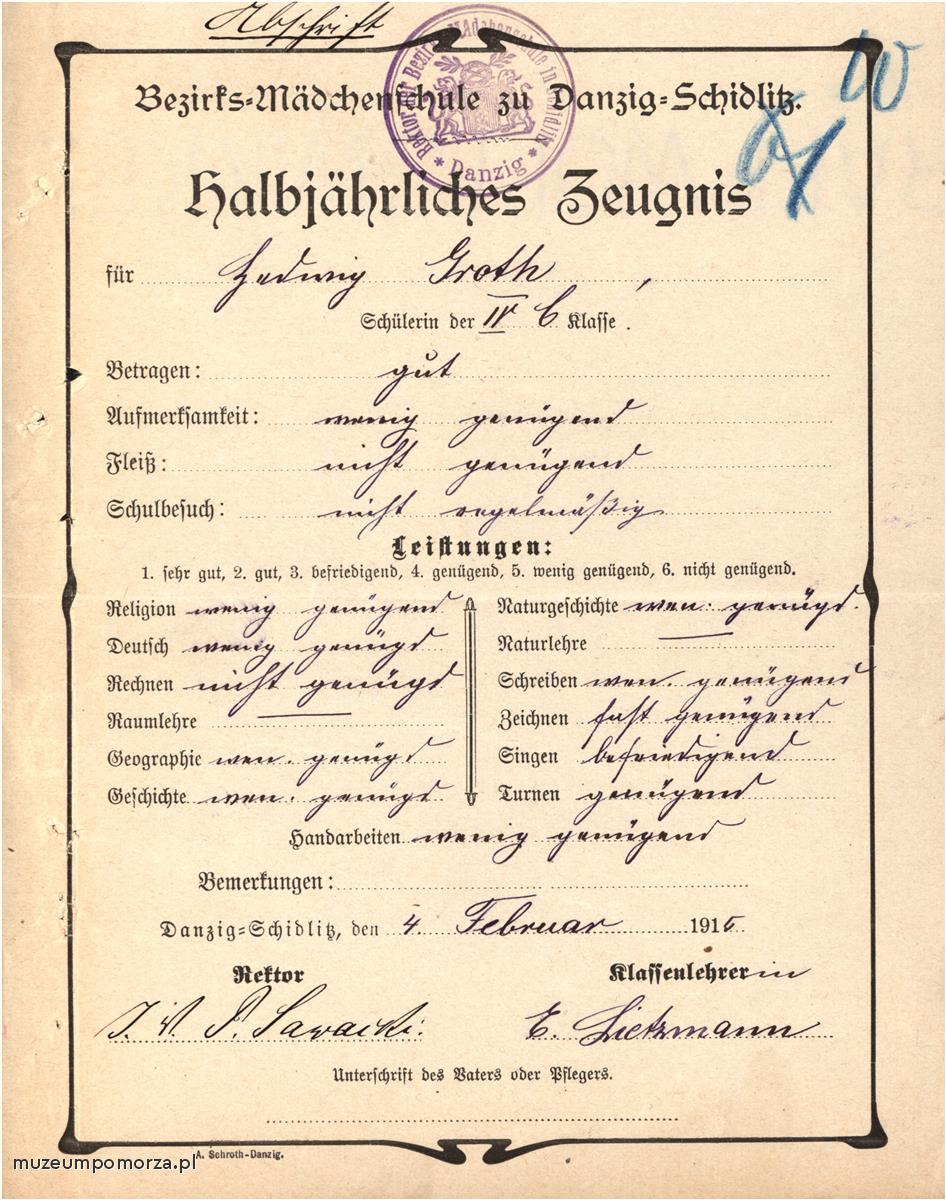 Abschrift
Rektor der Bezirks-Mädchenschule in Schidlitz
* Danzig *
Bezirks-Mädchenschule zu Danzig-Schidlitz.
Halbjährliches Zeugnis
für Hedwig Groth,
Schülerin der IV C Klasse.
Betragen: gut
Aufmerksamkeit: wenig genügend
Fleiß: nicht genügend
Schulbesuch: nicht regelmäßig
Leistungen:
1. sehr gut, 2. gut, 3. befriedigend, 4. genügend, 5. wenig genügend, 6. nicht genügend.
Religion wenig genügend
Deutsch wenig genügd
Rechnen nicht genügd
Raumlehre —
Geographie wen. genügd
Geschichte wen. genügd
Naturgeschichte wen. genügd.
Naturlehre —
Schreiben wen. genügend
Zeichnen fast genügend
Singen befriedigend
Turnen genügend
Handarbeiten wenig genügend
Bemerkungen:
Danzig-Schidlitz, den 4. Februar 1915
Rektor
Klassenlehrerin
J. V. P. Sawacki.
E. Lietzmann
Unterschrift des Vaters oder Pflegers.
A. Schroth-Danzig.
muzeumpomorza.pl